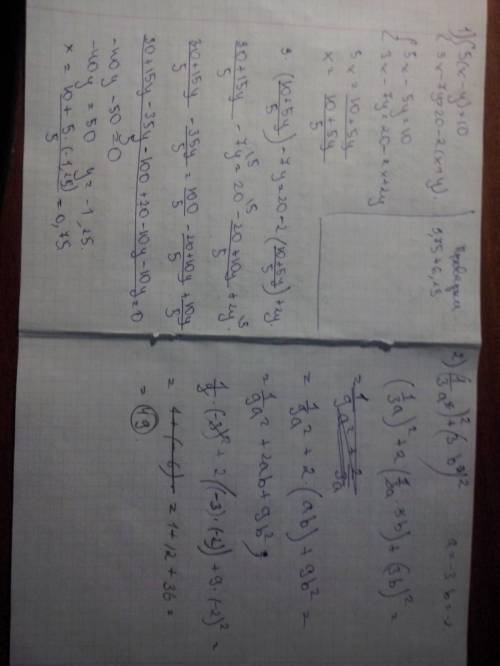 1) { 5(x-y)=10
3x-7y=20-2(x+y).
{ 5x-5y=10
3x-7y=20-2x+2y
5x = 10+5y
x = 10+5y/5
3·(10+5y/5)-7y=20-2(10+5y/5)+2y.
30+15y/5 - 7y = 20 - 20+10y/5 + 2y.
30+15y/5 - 35y/5 = 100/5 - 20+10y/5 + 10y/5
30+15y-35y-100+20-10y-10y=0/5
-40y-50=0
-40y=50 y=-1,25.
x = 10+5·(-1,25)/5 = 0,75
2)
a=-3 b=-2
(1/3a)²+2(1/3a·3b)+(3b)²=
= 1/9a²+2(ab)+9b²=
= 1/9a²+2ab+9b²;
1/9·(-3)²+2((-3)·(-2))+9·(-2)²=
= 1+12+36=
= 49